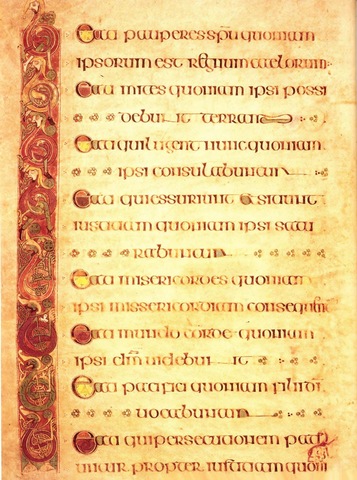 Beati pauperes sp̄u quoniam
ipsorum est regnum caelorum
Beati mites quoniam ipsi possi
debunt terram
Beati qui lugent nunc quoniam
ipsi consulabuntur
Beati qui essuriunt & sitiunt
iustitiam quoniam ipsi satu
rabuntur
Beati misericordes quoniam
ipsi missericordiam consequntur
Beati mundo corde quoniam
ipsi dm̄ uidebunt
Beati pacifici quoniam filii dī
uocabuntur
Beati qui persecutionem pati
untur propter iustitiam quoni